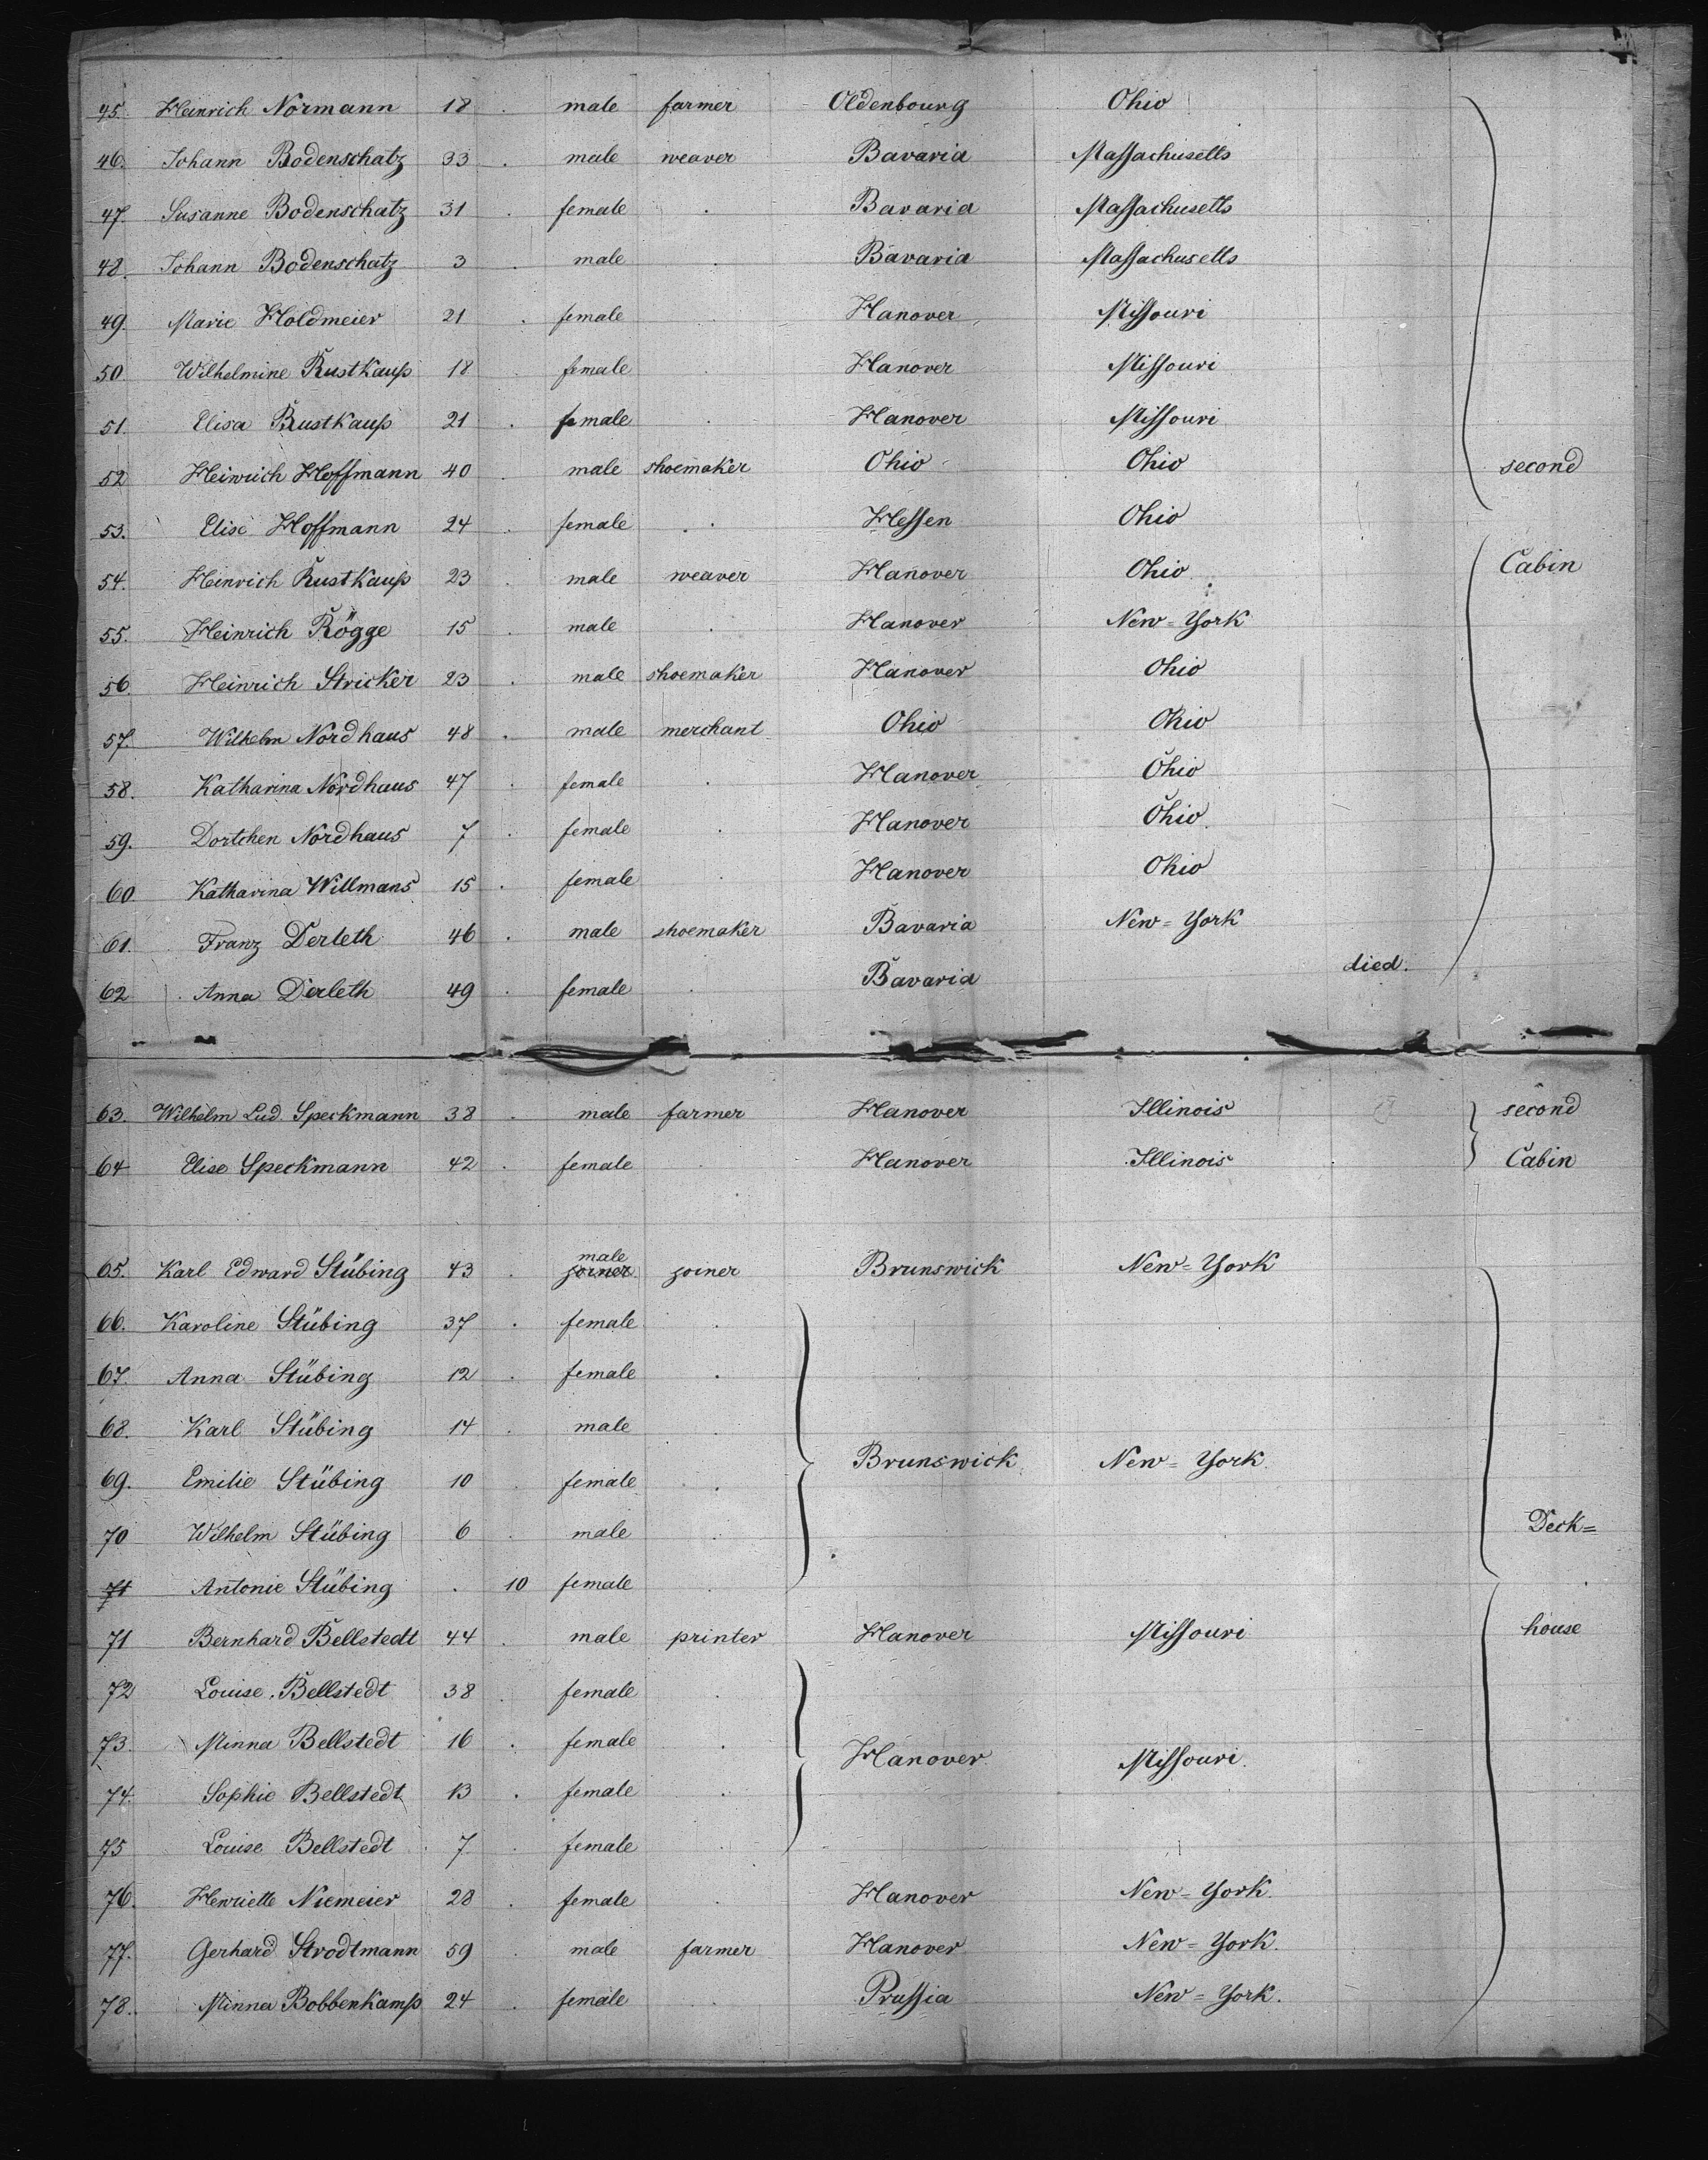 45. Heinrich Normann 18 . male farmer Oldenbourg Ohio
46. Johann Bodenschatz 33 . male weaver Bavaria Massachusetts
47. Susanne Bodenschatz 31 . female . Bavaria Massachusetts
48. Johann Bodenschatz 3 . male . Bavaria Massachusetts
49. Marie Holdmeier 21 . female . Hanover Missouri
50 Wilhelmine Rustkamp 18 . female . Hanover Missouri
51. Elisa Rustkamp 21 . female . Hanover Missouri
52 Heinrich Hoffmann 40 . male shoemaker Ohio Ohio second
53. Elise Hoffmann 24 . female . Hessen Ohio
54. Heinrich Rustkamp 23 . male weaver Hanover Ohio Cabin
55. Heinrich Rögge 15 . male . Hanover New=York
56. Heinrich Stricker 23 . male shoemaker Hanover Ohio
57. Wilhelm Nordhaus 48 . male merchant Ohio Ohio
58. Katharina Nordhaus 47 . female . Hanover Ohio
59. Dortchen Nordhaus 7 . female . Hanover Ohio
60 Katharina Willmans 15 . female . Hanover Ohio
61. Franz Derleth 46 . male shoemaker Bavaria New=York
62 Anna Derleth 49 . female . Bavaria died.
63. Wilhelm Lud. Speckmann 38 . male farmer Hanover Illinois second
64 Elise Speckmann 42 . female . Hanover Illinois Cabin
65. Karl Edward Stübing 43 . joiner male joiner Brunswick New=York
66. Karoline Stübing 37 . female .
67. Anna Stübing 12 . female .
68. Karl Stübing 14 . male .
Brunswick New=York.
69. Emilie Stübing 10 . female .
70 Wilhelm Stübing 6 . male . Deck=
71 Antonie Stübing . 10 female .
71 Bernhard Bellstedt 44 . male printer Hanover Missouri house
72 Louise Bellstedt 38 . female .
73. Minna Bellstedt 16 . female .
Hanover. Missouri.
74. Sophie Bellstedt 13 . female .
75 Louise Bellstedt 7. . female .
76. Henriette Niemeier 28 . female . Hanover New=York.
77. Gerhard Strodtmann 59 . male farmer Hanover New=York.
78. Minna Bobbenkamp 24 . female . Prussia New=York.